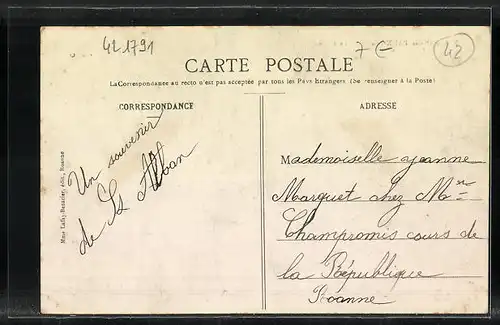 421791
7€
42
CARTE POSTALE
La Correspondance au recto n'est pas acceptée par tous les Pays Etrangers. (Se renseigner à la Poste)
CORRESPONDANCE
ADRESSE
Un souvenir
de St Alban
Mme Lafay-Bessacier, édit., Roanne
Mademoiselle Jeanne
Marguet chez Mme
Champromis cours de
la République
Roanne